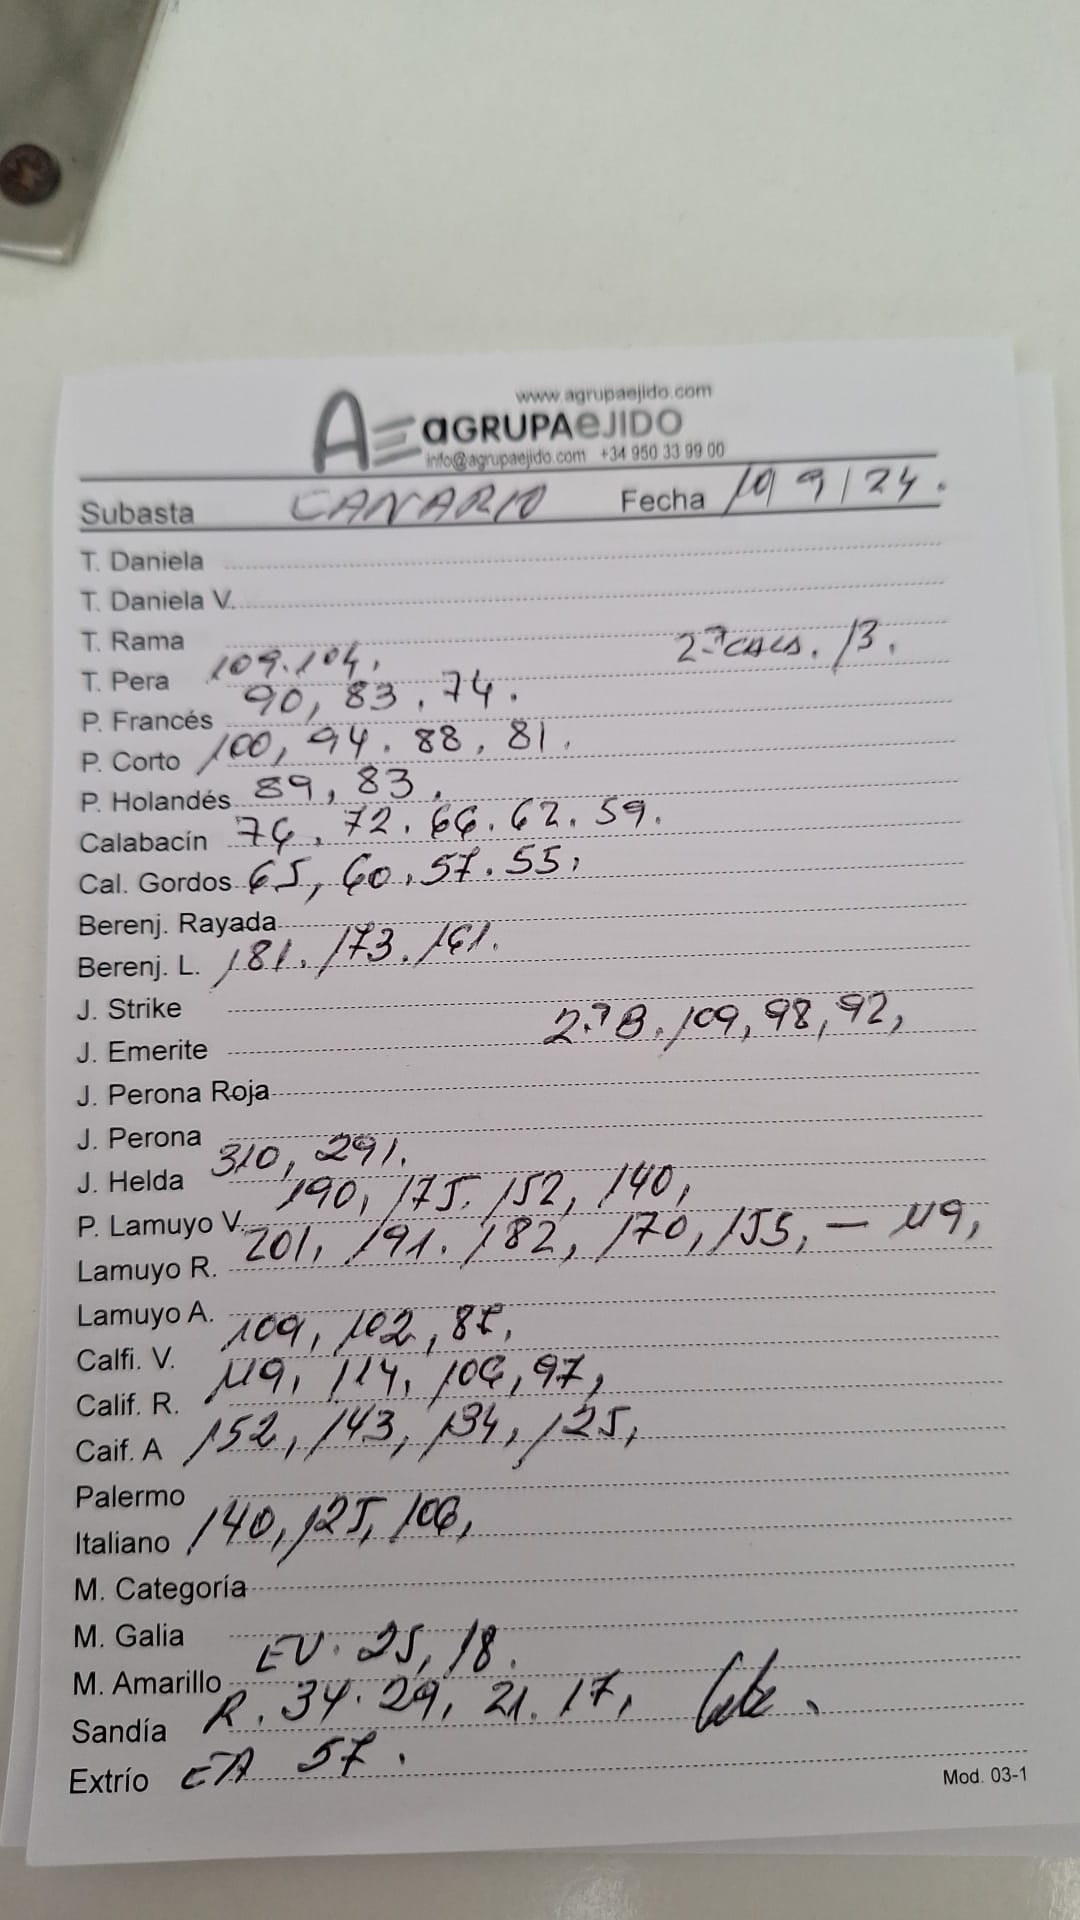 www.agrupaejido.com
AE aGRUPAeJIDO
info@agrupaejido.com +34 950 33 99 00
Subasta CANARIO Fecha 10/9/24.
T. Daniela
T. Daniela V.
T. Rama
T. Pera 109.104, 2ª CALS. 13.
P. Francés 90, 83, 74.
P. Corto 100, 94. 88, 81,
P. Holandés 89, 83,
Calabacín 76, 72. 66. 62. 59.
Cal. Gordos 65, 60, 57. 55,
Berenj. Rayada
Berenj. L. 181. 173. 161.
J. Strike
J. Emerite 2ª B. 109, 98, 92,
J. Perona Roja
J. Perona
J. Helda 310, 291.
P. Lamuyo V. 190, 175. 152, 140,
Lamuyo R. 201, 191. 182, 170, 155, – 119,
Lamuyo A.
Calfi. V. 109, 102, 87,
Calif. R. 119, 114, 106, 97,
Caif. A 152, 143, 134, 125,
Palermo
Italiano 140, 125, 106,
M. Categoría
M. Galia
M. Amarillo EV. 25, 18.
Sandía R. 34. 29, 21. 17,
Extrío EA 57.
Mod. 03-1